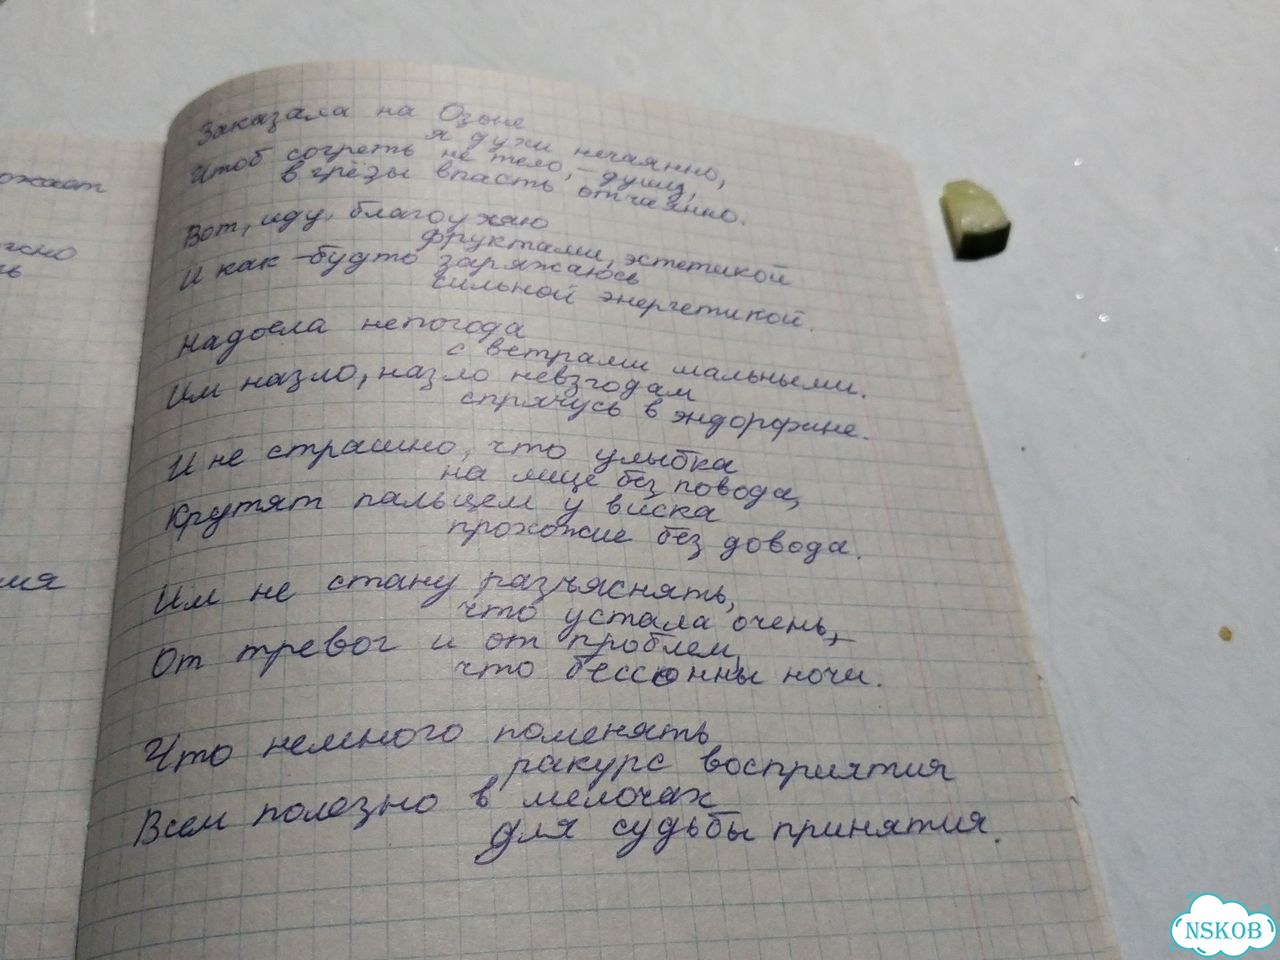 Заказала на Озоне
я духи нечаянно,
Чтоб согреть не тело, – душу,
в грёзы впасть отчаянно.
Вот, иду, благоухаю
фруктами, эстетикой
И как-будто заряжаюсь
сильной энергетикой.
Надоела непогода
с ветрами шальными.
Им назло, назло невзгодам
спрячусь в эндорфине.
И не страшно, что улыбка
на лице без повода,
Крутят пальцем у виска
прохожие без довода.
Им не стану разъяснять,
что устала очень,
От тревог и от проблем,
что бессонны ночи.
Что немного поменять
ракурс восприятия
Всем полезно в мелочах
для судьбы принятия.
NSKOB